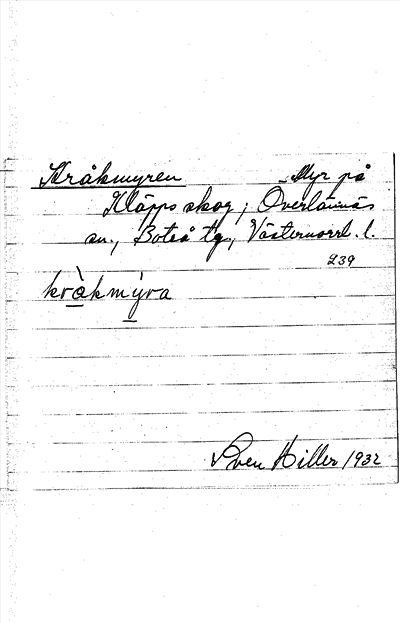 Kråkmyren Myr på
Kläpps skog, Överlännäs
sn., Boteå tg, Västernorrl. l.
239
kràkmýra
Sven Hiller 1932